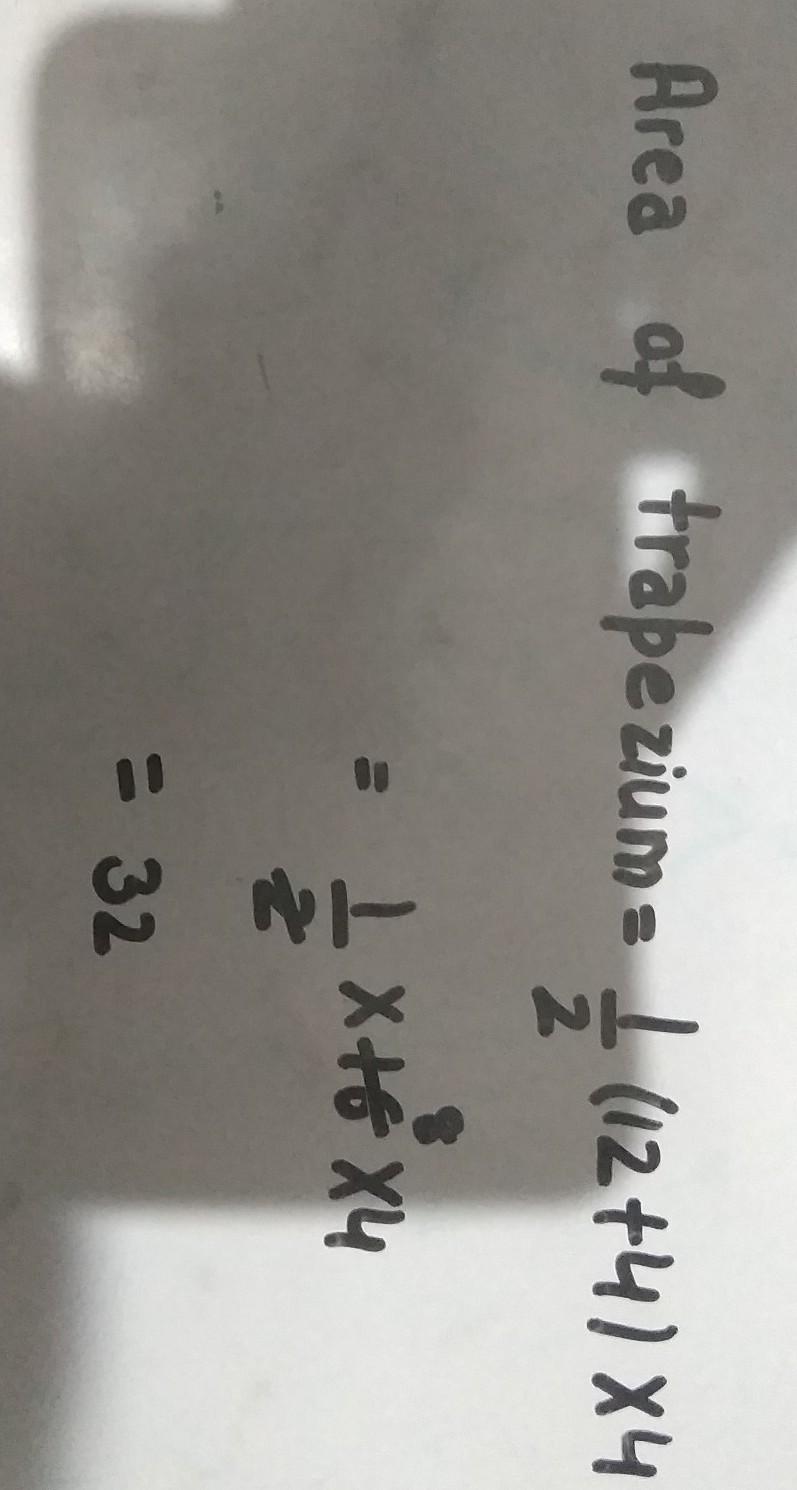 Area of trapezium = 1/2 (12+4) x4
= 1/2 x 16 8 x4
= 32